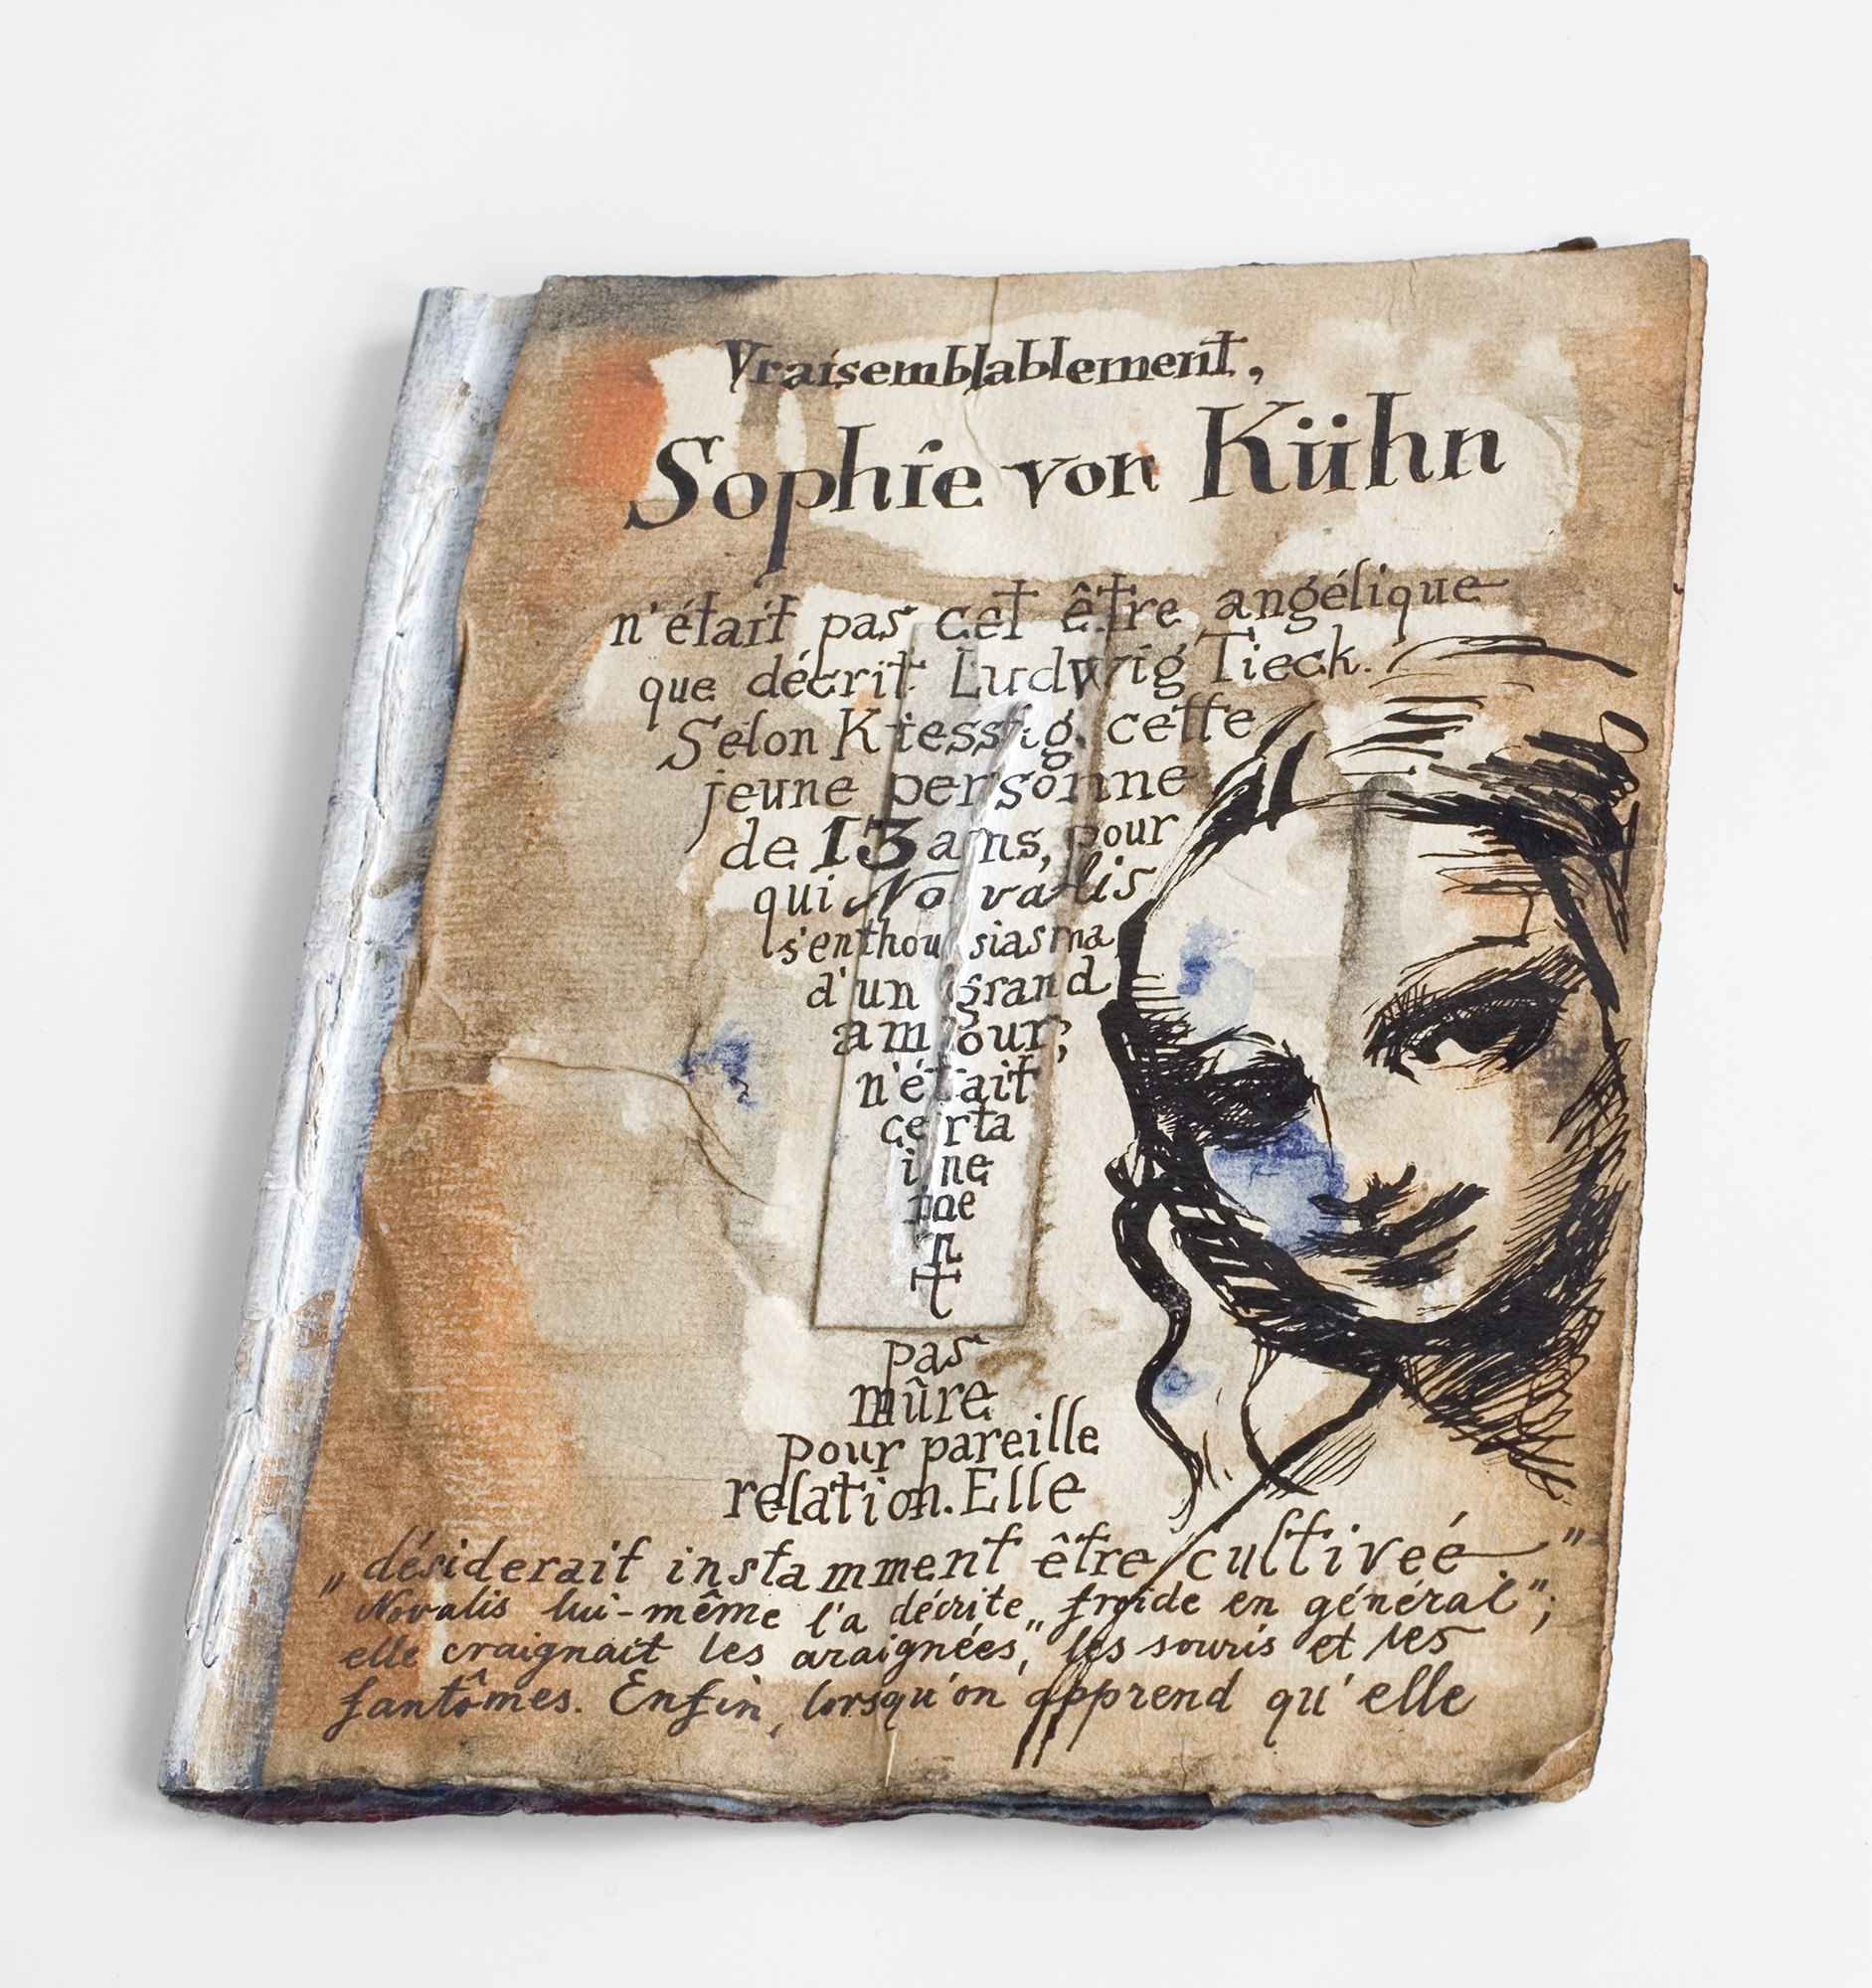 Vraisemblablement,
Sophie von Kühn
n'était pas cet être angélique
que décrit Ludwig Tieck.
Selon Kiessig, cette
jeune personne
de 13 ans, pour
qui Novalis
s'enthousiasma
d'un grand
amour;
n'était
certa
ine
me
n
t
pas
mûre
pour pareille
relation. Elle
„désiderait instamment être cultiveé"
Novalis lui-même l'a décrite „froide en général";
elle craignait les araignées", les souris et les
fantômes. Enfin, lorsqu'on apprend qu'elle